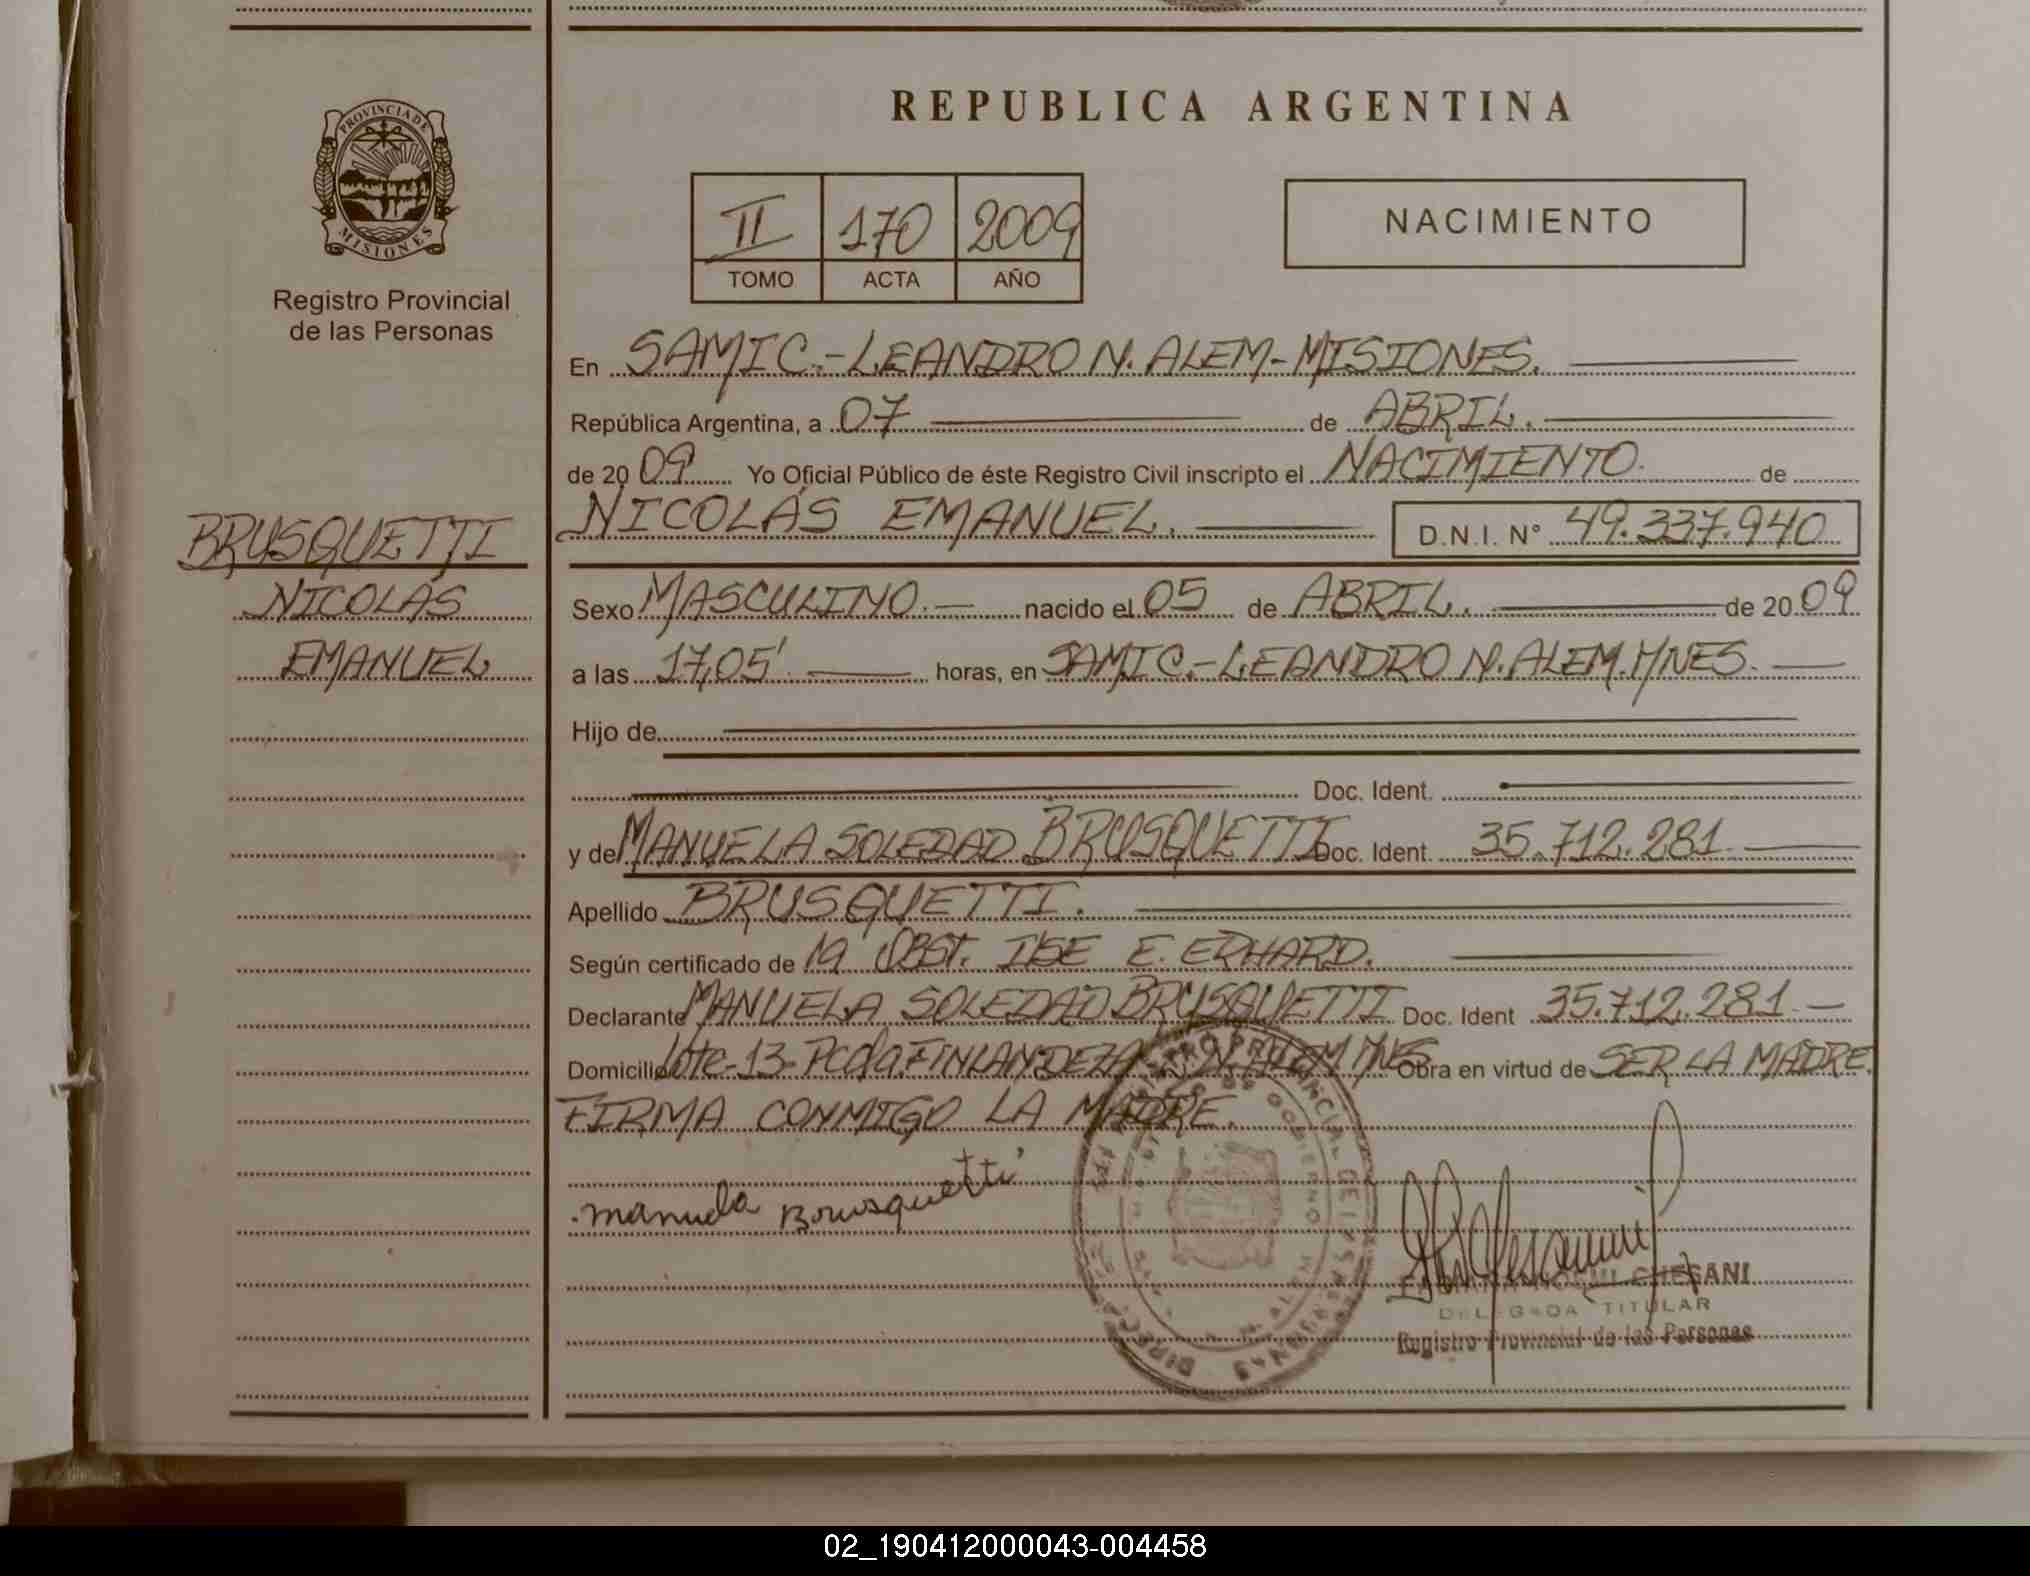 REPUBLICA ARGENTINA
PROVINCIA DE
MISIONES
Registro Provincial
de las Personas
II 170 2009
TOMO ACTA AÑO
NACIMIENTO
En SAMIC.-LEANDRO N. ALEM-MISIONES.
República Argentina, a 07 de ABRIL.
de 2009 Yo Oficial Público de éste Registro Civil inscripto el NACIMIENTO. de
NICOLÁS EMANUEL. D.N.I. N° 49.337.940
BRUSQUETTI
NICOLÁS
EMANUEL
Sexo MASCULINO.- nacido el 05 de ABRIL. de 2009
a las 17,05' horas, en SAMIC.-LEANDRO N. ALEM. MNES.
Hijo de
Doc. Ident.
y de MANUELA SOLEDAD BRUSQUETTI Doc. Ident. 35.712.281
Apellido BRUSQUETTI.
Según certificado de la OBST. ILSE E. ERHARD.
Declarante MANUELA SOLEDAD BRUSQUETTI Doc. Ident 35.712.281.-
Domicilio Lote-13-Pcda. FINLANDEZA N. ALEM MNES Obra en virtud de SER LA MADRE.
FIRMA CONMIGO LA MADRE.
manuela Brusquetti
NOEMI CHESANI
DELEGADA TITULAR
Registro Provincial de las Personas
02_190412000043-004458